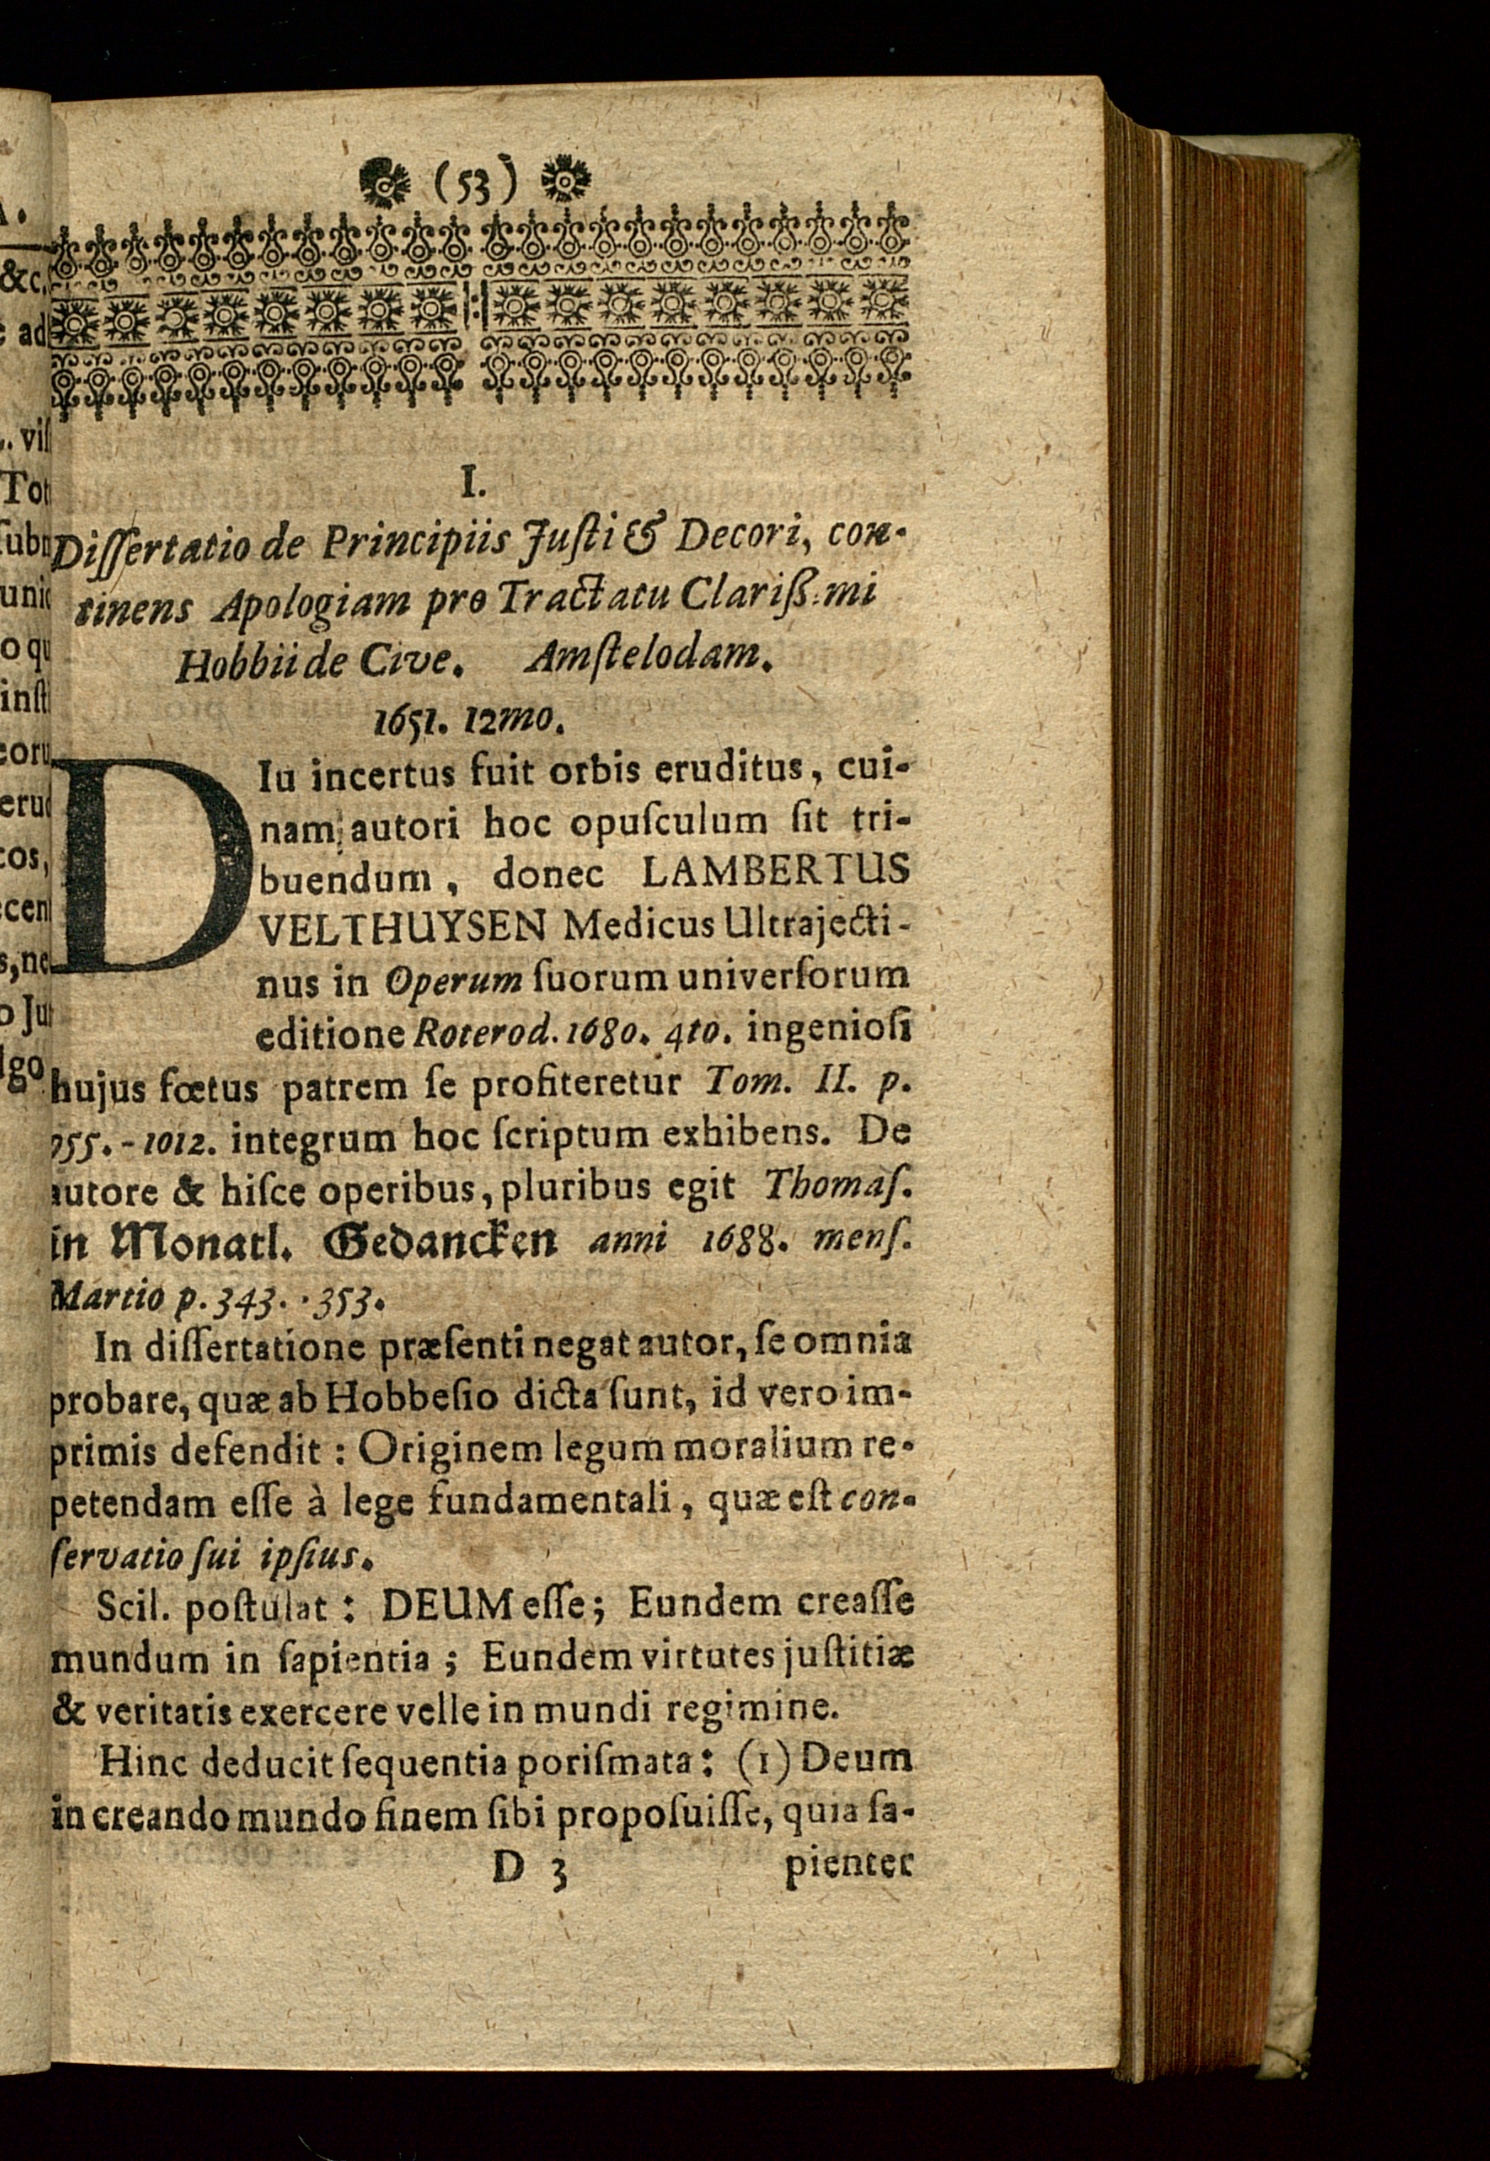 (53)
I.
Dissertatio de Principiis Justi & Decori, con-
tinens Apologiam pro Tractatu Clariss:mi
Hobbii de Cive. Amstelodam.
1651. 12mo.
DIu incertus fuit orbis eruditus, cui-
nam autori hoc opusculum sit tri-
buendum, donec LAMBERTUS
VELTHUYSEN Medicus Ultrajecti-
nus in Operum suorum universorum
editione Roterod. 1680. 4to. ingeniosi
hujus fœtus patrem se profiteretur Tom. II. p.
955.-1012. integrum hoc scriptum exhibens. De
autore & hisce operibus, pluribus egit Thomas.
in Monatl. Gedancken anni 1688. mens.
Martio p. 343. . 353.
In dissertatione præsenti negat autor, se omnia
probare, quæ ab Hobbesio dicta sunt, id vero im-
primis defendit: Originem legum moralium re-
petendam esse à lege fundamentali, quæ est con-
servatio sui ipsius.
Scil. postulat: DEUM esse; Eundem creasse
mundum in sapientia; Eundem virtutes justitiæ
& veritatis exercere velle in mundi regimine.
Hinc deducit sequentia porismata: (1) Deum
in creando mundo finem sibi proposuisse, quia sa-
D 3 pienter